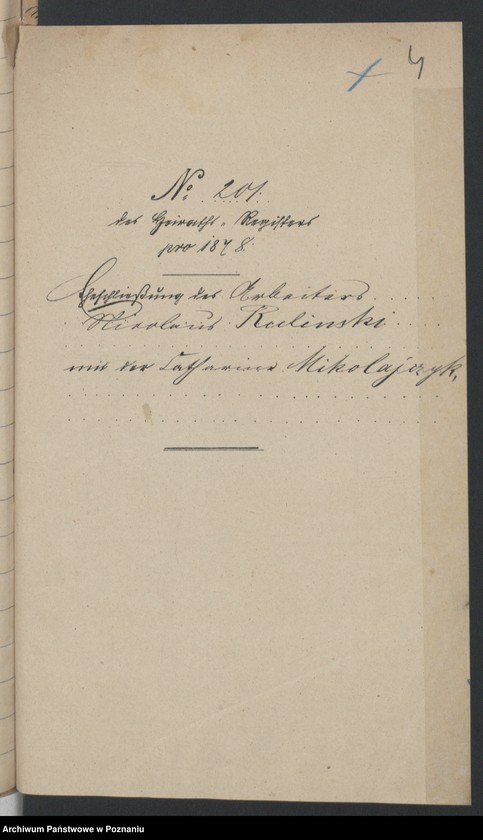 4
No 201.
des Heiraths-Registers
pro 1878.
Eheschließung des Arbeiters
Nicolaus Kulinski
mit der Catharina Mikolajczyk,
Archiwum Państwowe w Poznaniu